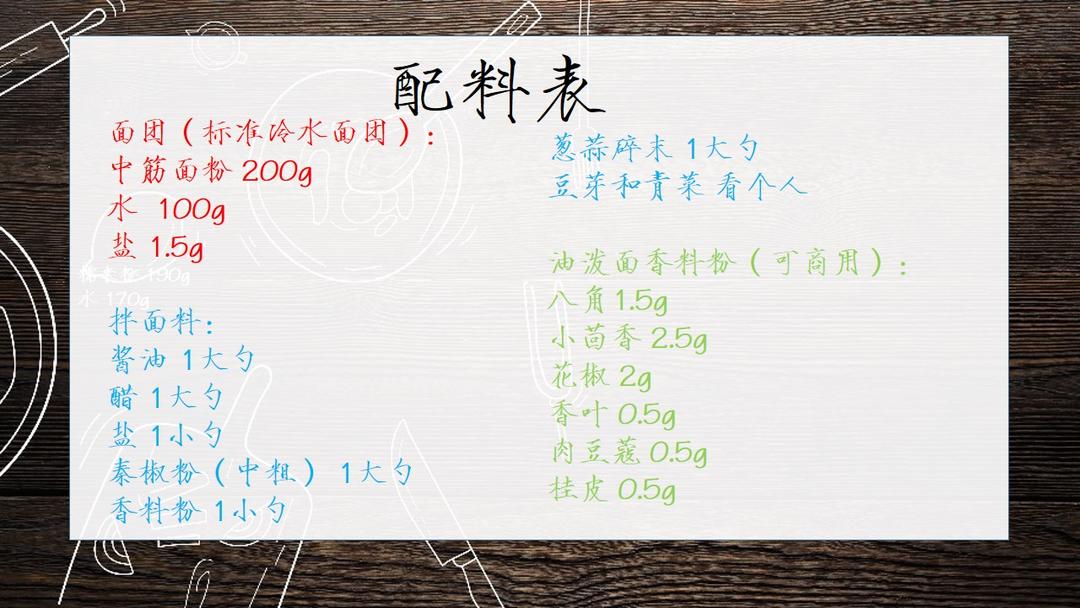 配料表
面团（标准冷水面团）：
中筋面粉 200g
水 100g
盐 1.5g
水 170g
拌面料：
酱油 1大勺
醋 1大勺
盐 1小勺
秦椒粉（中粗） 1大勺
香料粉 1小勺
葱蒜碎末 1大勺
豆芽和青菜 看个人
油泼面香料粉（可商用）：
八角 1.5g
小茴香 2.5g
花椒 2g
香叶 0.5g
肉豆蔻 0.5g
桂皮 0.5g